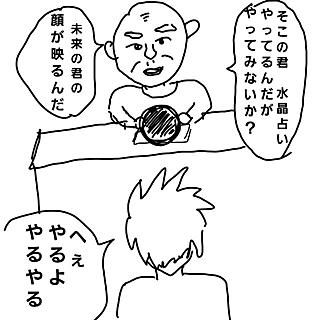 そこの君　水晶占い
やってるんだが
やってみないか？
未来の君の
顔が映るんだ
へぇ
やるよ
やるやる